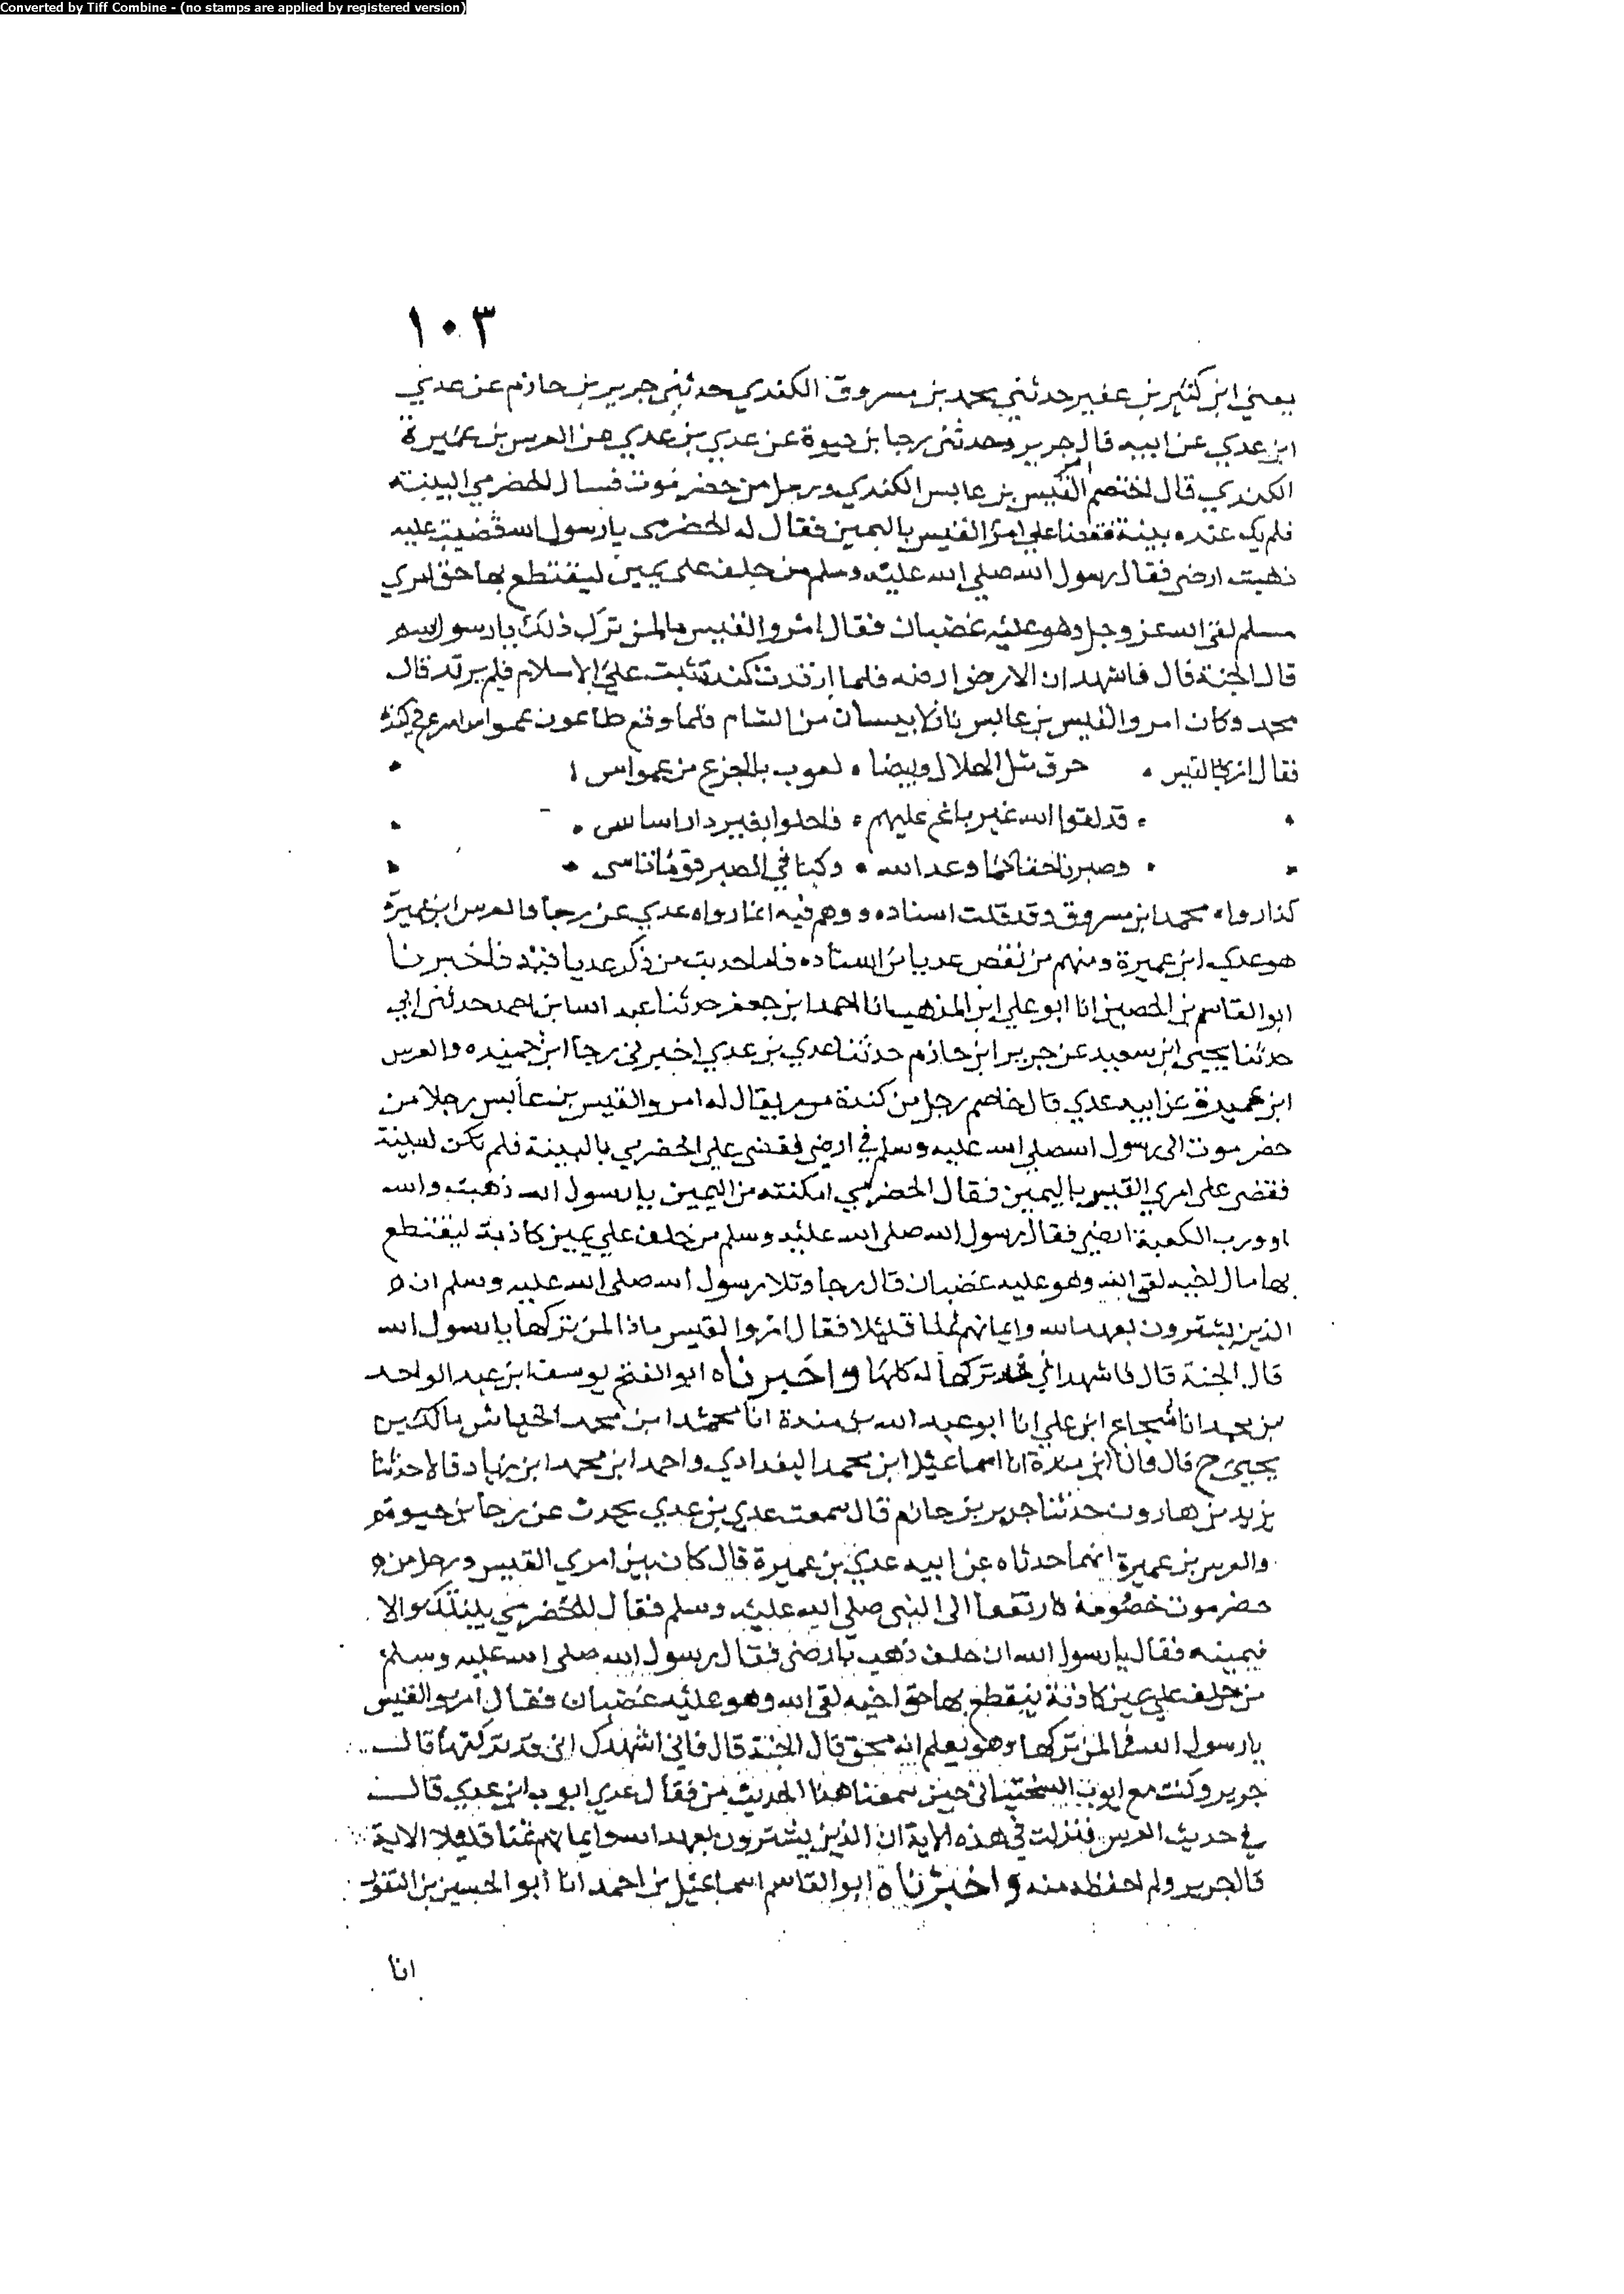 Converted by Tiff Combine - (no stamps are applied by registered version)
١٠٣
يعني ابن كثير بن عفير حدثني محمد بن مسروق الكندي حدثني جرير بن حازم عن عدي
ابن عدي عن ابيه قال جرير وحدثني رجا بن حيوة عن عدي بن عدي عن العرس بن عميرة
الكندي قال اختصم امرؤ القيس بن عابس الكندي ورجل من حضرموت فسال الحضرمي البينة
فلم يك عنده بينة فقضا علي امرؤ القيس باليمين فقال له الحضرمى يا رسول الله قضيت عليه
ذهبت ارضي فقال رسول الله صلي الله عليه وسلم من حلف على يمين ليقتطع بها حق امري
مسلم لقى الله عز وجل وهو عليه غضبان فقال امرو القيس مالمن ترك ذلك يا رسول الله
قال الجنة قال فاشهد ان الارض ارضه فلما ارتدت كندة ثبت علي الاسلام فلم يرتد قال
محمد وكان امرو القيس بن عابس نازلا بيسان من الشام فلما وقع طاعون عمواس اسرع في كندة
فقال امرؤ القيس حرق مثل الهلال وبيضا لعوب بالجزع من عمواس
قد لقوا الله غير باغ عليهم فاحلوا بغير دار اساس
وصبرنا حفاظا وعد الله وكنا في الصبر قوما تاسى
كذا رواه محمد ابن مسروق وقد قلت اسناده ووهم فيه انما رواه عدي عن رجا والعرس ابن عميرة
هو عدي ابن عميرة ومنهم من نقص عديا من اسناده فاما حديث من ذكر عديا فيه فاخبرنا
ابو القاسم بن الحصين انا ابو علي ابن المذهب انا احمد ابن جعفر حدثنا عبد الله ابن احمد حدثني ابي
حدثنا يحيى ابن سعيد عن جرير ابن حازم حدثنا عدي بن عدي اخبرني رجا ابن حيوة والعرس
ابن عميرة عن ابيه عدي قال خاصم رجل من كندة يقال له امرو القيس بن عابس رجلا من
حضرموت الى رسول الله صلي الله عليه وسلم في ارض فقضى علي الحضرمي بالبينة فلم تكن له بينة
فقضى على امري القيس باليمين فقال الحضرمي امكنته من اليمين يا رسول الله ذهبت والله
او ورب الكعبة ارضي فقال رسول الله صلى الله عليه وسلم من حلف علي يمين كاذبة ليقتطع
بها مال اخيه لقي الله وهو عليه غضبان قال رجا وتلا رسول الله صلى الله عليه وسلم ان
الذين يشترون بعهد الله وايمانهم ثمنا قليلا فقال امرو القيس ماذا لمن تركها يا رسول الله
قال الجنة قال فاشهد اني قد تركها له كلها واخبرناه ابو الفتح يوسف ابن عبد الواحد
بن محمد انا شجاع ابن علي انا ابو عبد الله بن مندة انا محمد ابن محمد
يحيى ح قال وانا ابن مندة انا اسماعيل ابن محمد البغدادي واحمد ابن محمد ابن زياد قالا حدثنا
يزيد بن هارون حدثنا جرير بن حازم قال سمعت عدي بن عدي يحدث عن رجا بن حيوة
والعرس بن عميرة انهما حدثاه عن ابيه عدي بن عميرة قال كان بين امري القيس ورجل من
حضرموت خصومة فارتفعا الى النبى صلي الله عليه وسلم فقال للحضرمي بينتك والا
فيمينه فقال يا رسول الله ان حلف ذهب بارضى فقال رسول الله صلى الله عليه وسلم
من حلف علي يمين كاذبة ليقطع بها حق اخيه لقى الله وهو عليه غضبان فقال امرو القيس
يا رسول الله فما لمن تركها وهو يعلم انه محق قال الجنة قال فاني اشهدك انى قد تركتها قال
جرير وكنت مع ايوب السختياني حين سمعنا هذا الحديث من فقال عدي ايوب ابن عدي قال
في حديث العرس فنزلت في هذه الاية ان الذين يشترون بعهد الله وايمانهم ثمنا قليلا الاية
قال جرير ولم احفظه منه واخبرناه ابو القاسم اسماعيل بن احمد انا ابو الحسين بن النقور
انا